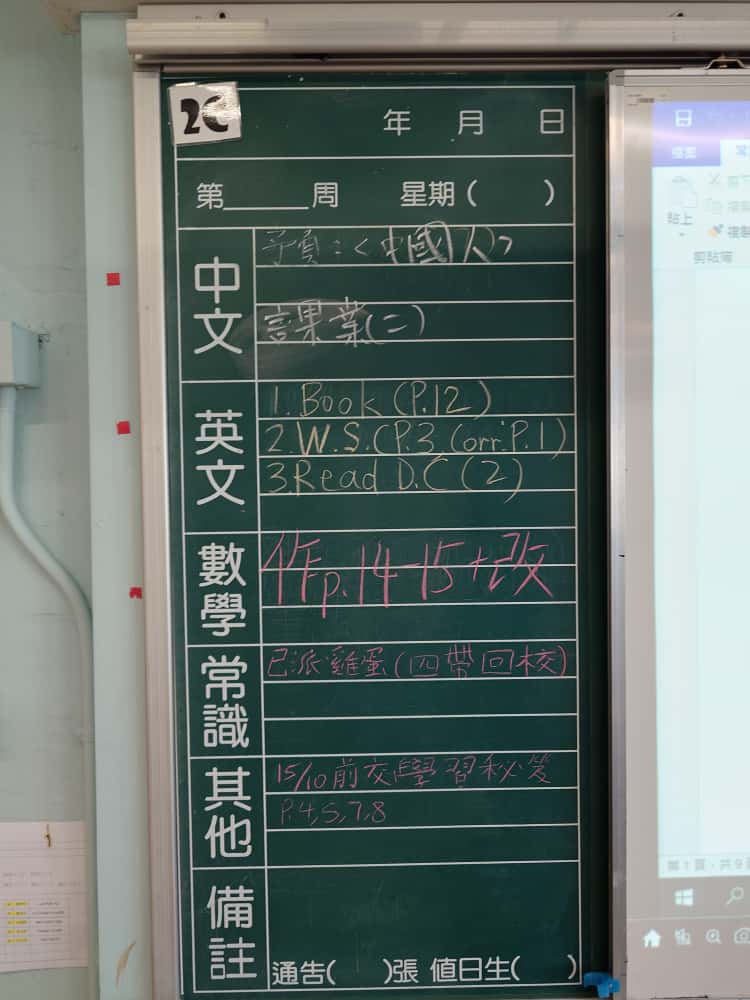 2C
年 月 日
第______周 星期( )
中文
予頁:〈中國人〉
課業(二)
英文
1. Book (P.12)
2. W.S. (P.3, Corr. P.1)
3. Read D.C (2)
數學
作p.14-15+改
常識
已派雞蛋(四帶回校)
其他
15/10前交學習秘笈
P.4,5,7,8
備註
通告( )張 值日生( )
檔案
貼上
剪下
複製
剪貼簿